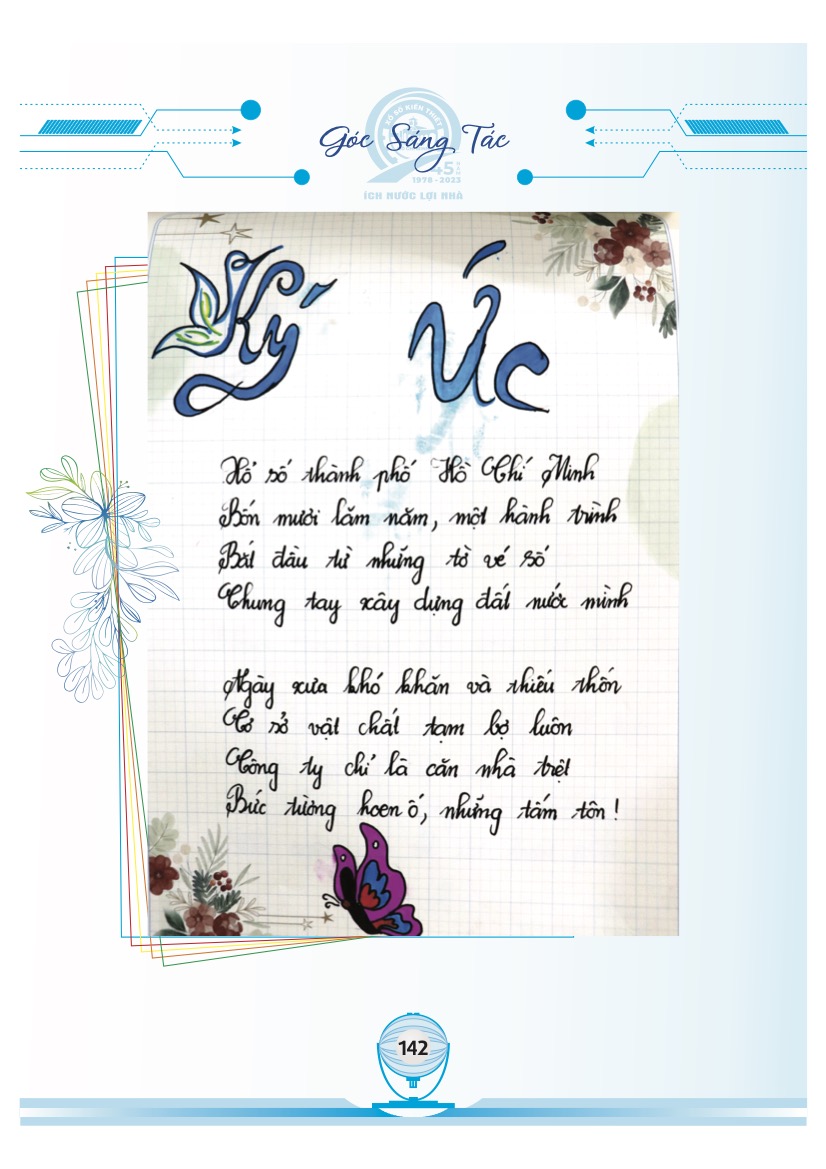 Góc Sáng Tác
XỔ SỐ KIẾN THIẾT
45
1978 - 2023
ÍCH NƯỚC LỢI NHÀ
Ký Ức
Xổ số thành phố Hồ Chí Minh
Bốn mươi lăm năm, một hành trình
Bắt đầu từ những tờ vé số
Chung tay xây dựng đất nước mình
Ngày xưa khó khăn và thiếu thốn
Cơ sở vật chất tạm bợ luôn
Công ty chỉ là căn nhà trệt
Bức tường hoen ố, những tấm tôn !
142